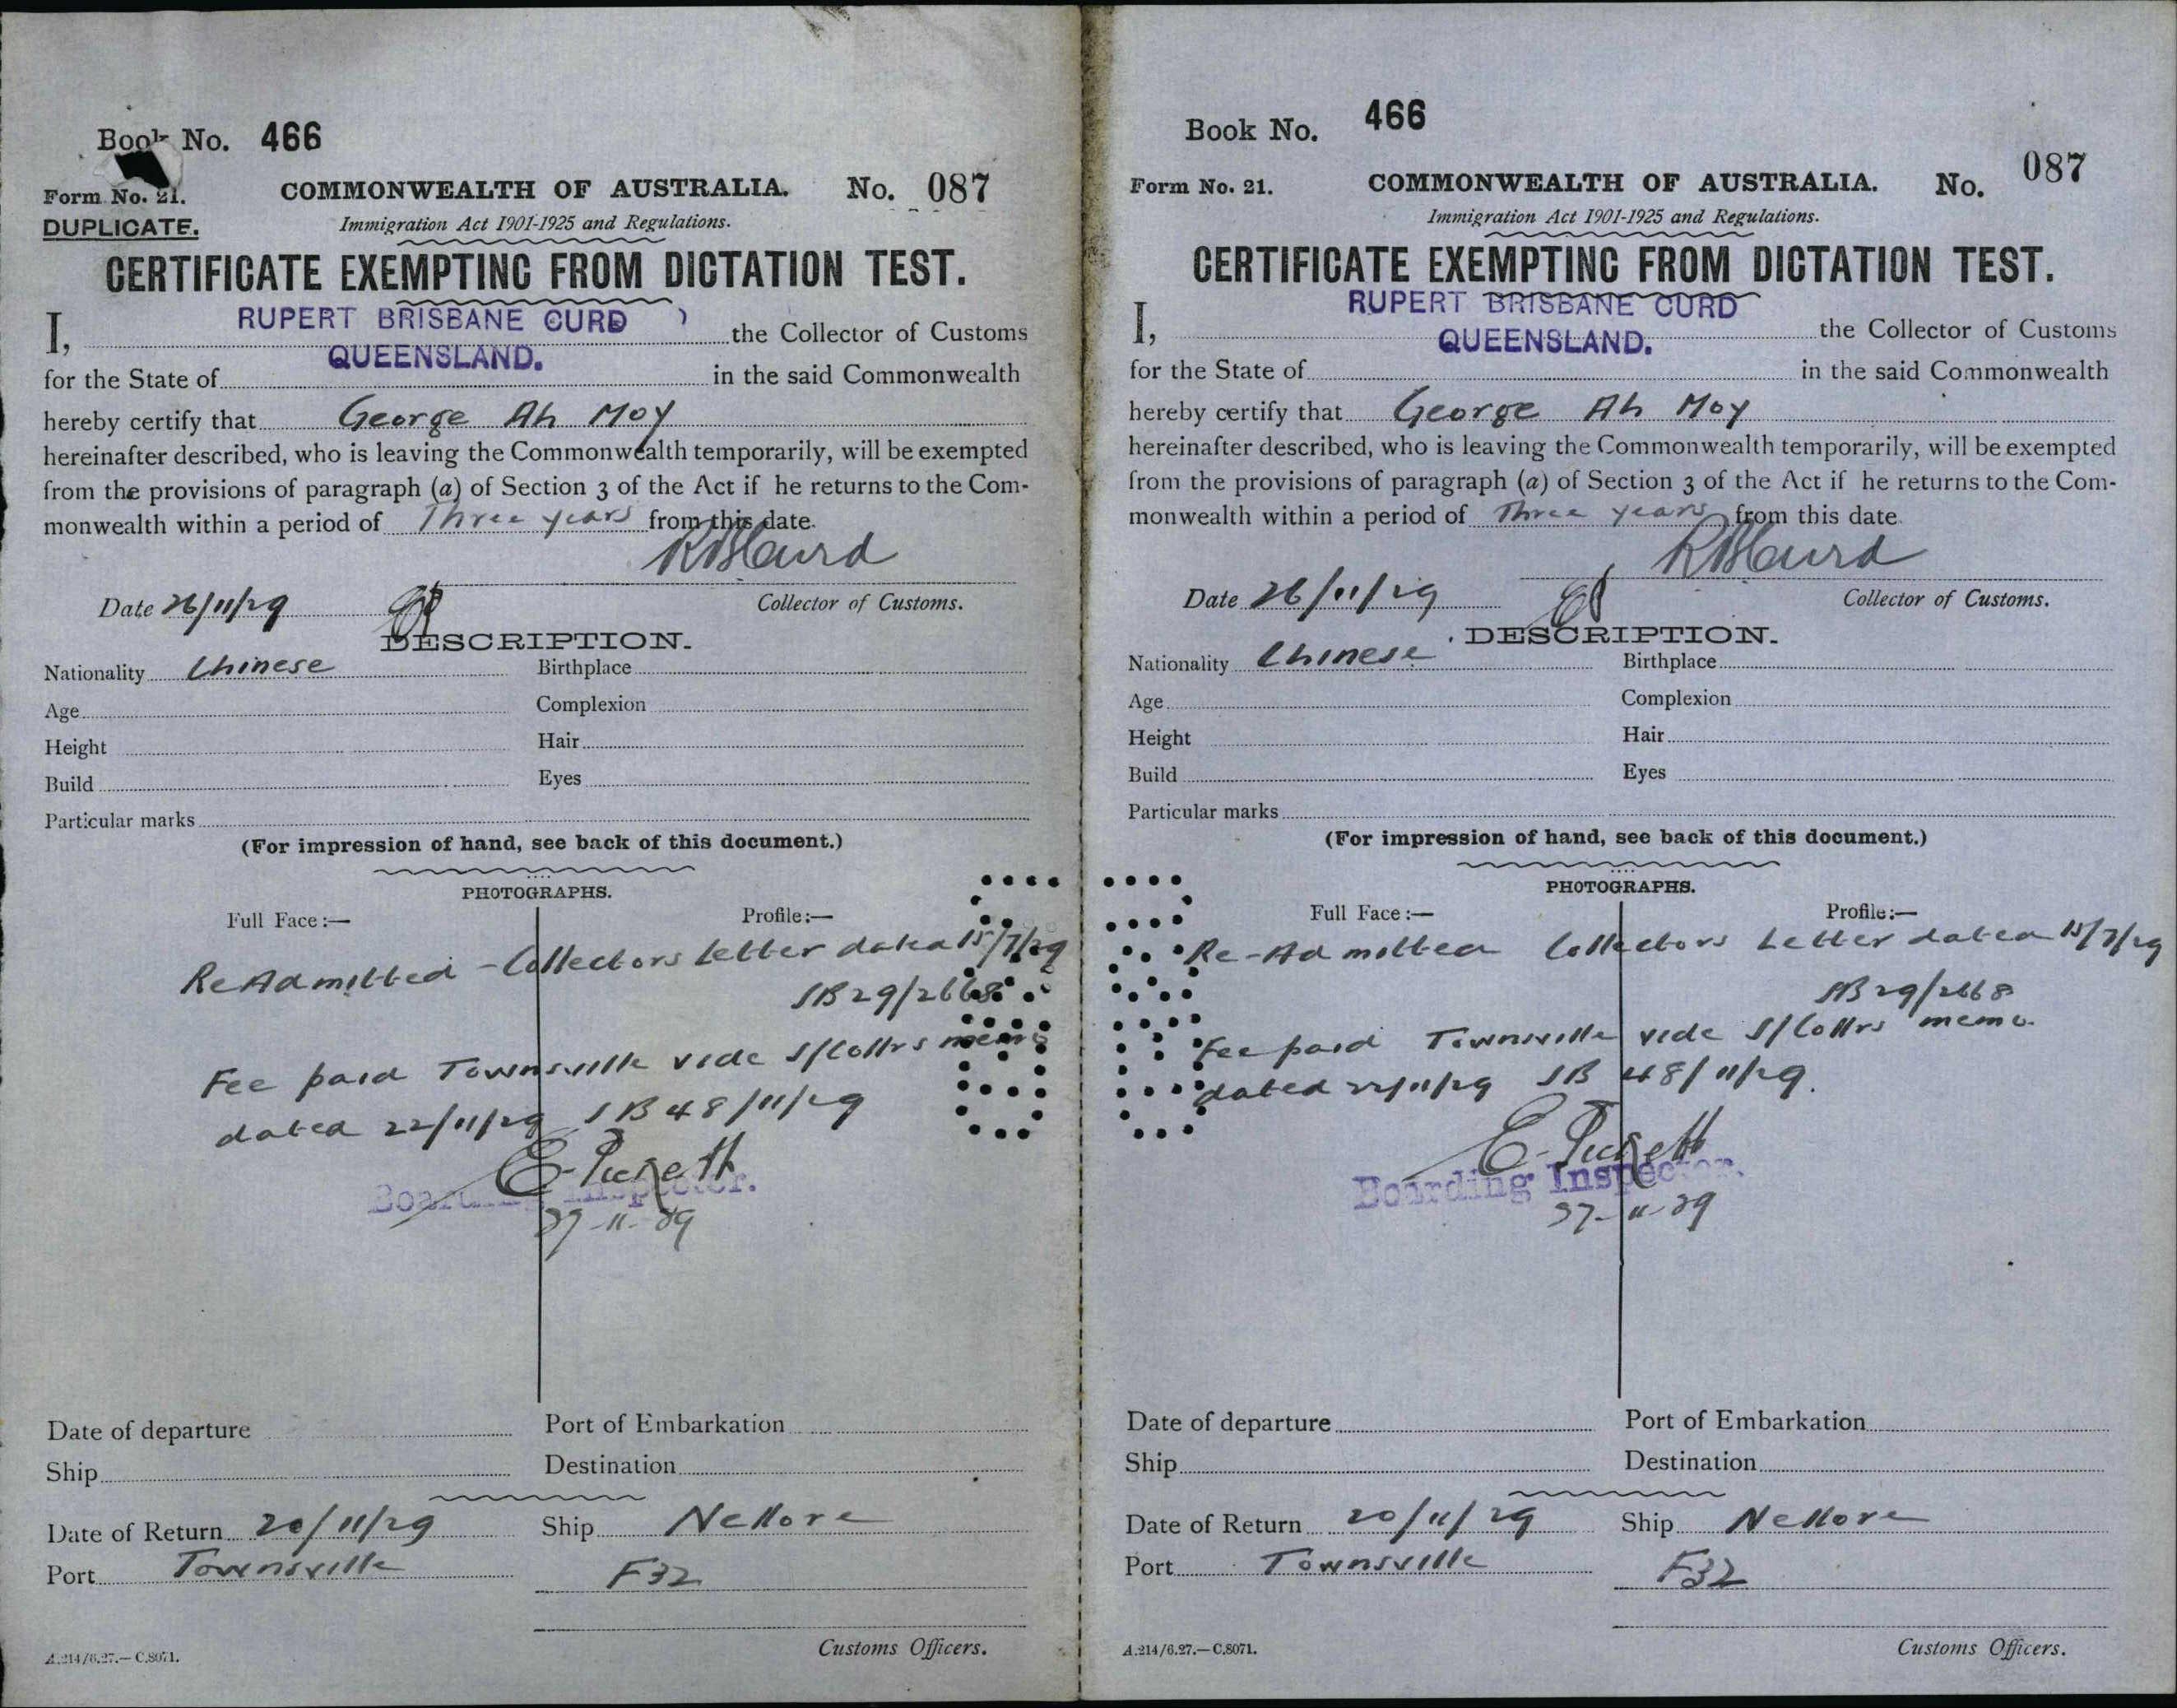 Book No. 466
Form No. 21.
DUPLICATE.
COMMONWEALTH OF AUSTRALIA. No. 087
Immigration Act 1901-1925 and Regulations.
CERTIFICATE EXEMPTING FROM DICTATION TEST.
I, RUPERT BRISBANE CURD the Collector of Customs
for the State of QUEENSLAND. in the said Commonwealth
hereby certify that George Ah Moy
hereinafter described, who is leaving the Commonwealth temporarily, will be exempted
from the provisions of paragraph (a) of Section 3 of the Act if he returns to the Com-
monwealth within a period of Three years from this date.
RBCurd
Date 26/11/29 Collector of Customs.
DESCRIPTION.
Nationality Chinese Birthplace
Age Complexion
Height Hair
Build Eyes
Particular marks
(For impression of hand, see back of this document.)
PHOTOGRAPHS.
Full Face:— Profile:—
ReAdmitted - Collectors Letter dated 15/7/29
SB29/2668
Fee paid Townsville vide S/Collrs memo
dated 22/11/29 SB48/11/29
Boarding Inspector.
27-11-29
Date of departure Port of Embarkation
Ship Destination
Date of Return 20/11/29 Ship Nellore
Port Townsville F32
Customs Officers.
A.214/6.27.—C.8071.
Book No. 466
Form No. 21. COMMONWEALTH OF AUSTRALIA. No. 087
Immigration Act 1901-1925 and Regulations.
CERTIFICATE EXEMPTING FROM DICTATION TEST.
I, RUPERT BRISBANE CURD the Collector of Customs
for the State of QUEENSLAND. in the said Commonwealth
hereby certify that George Ah Moy
hereinafter described, who is leaving the Commonwealth temporarily, will be exempted
from the provisions of paragraph (a) of Section 3 of the Act if he returns to the Com-
monwealth within a period of Three years from this date.
RBCurd
Date 26/11/29 Collector of Customs.
DESCRIPTION.
Nationality Chinese Birthplace
Age Complexion
Height Hair
Build Eyes
Particular marks
(For impression of hand, see back of this document.)
PHOTOGRAPHS.
Full Face:— Profile:—
Re-Admitted Collectors Letter dated 15/7/29
SB29/2668
Fee paid Townsville vide S/Collrs memo.
dated 22/11/29 SB 48/11/29.
Boarding Inspector.
27-11-29
Date of departure Port of Embarkation
Ship Destination
Date of Return 20/11/29 Ship Nellore
Port Townsville F32
Customs Officers.
A.214/6.27.—C.8071.